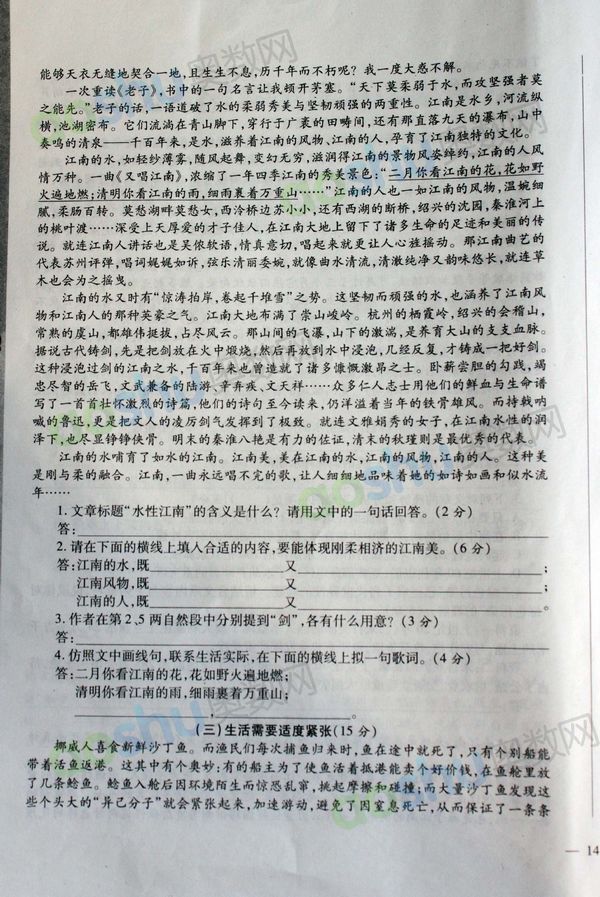 能够天衣无缝地契合一地,且生生不息,历千年而不朽呢?我一度大惑不解。
一次重读《老子》,书中的一句名言让我顿开茅塞。“天下莫柔弱于水,而攻坚强者莫
之能先。”老子的话,一语道破了水的柔弱秀美与坚韧顽强的两重性。江南是水乡,河流纵
横,池湖密布。它们流淌在青山脚下,穿行于广袤的田畴间,还有那直落九天的瀑布,山中
奏鸣的清泉——千百年来,是水,滋养着江南的风物,江南的人,孕育了江南独特的文化。
江南的水,如轻纱薄雾,随风起舞,变幻无穷,滋润得江南的景物风姿绰约,江南的人风
情万种。一曲《又唱江南》,浓缩了一年四季江南的秀美景色:“二月你看江南的花,花如野
火遍地燃;清明你看江南的雨,细雨裹着万重山……”江南的人也一如江南的风物,温婉细
腻,柔肠百转。莫愁湖畔莫愁女,西泠桥边苏小小,还有西湖的断桥,绍兴的沈园,秦淮河上
的桃叶渡……深受上天厚爱的才子佳人,在江南大地上留下了诸多生命的足迹和美丽的传
说。就连江南人讲话也是吴侬软语,情真意切,唱起来就更让人心旌摇动。那江南曲艺的
代表苏州评弹,唱词娓娓如诉,弦乐清丽委婉,就像曲水清流,清澈纯净又韵味悠长,就连草
木也会为之摇曳。
江南的水又时有“惊涛拍岸,卷起千堆雪”之势。这坚韧而顽强的水,也涵养了江南风
物和江南人的那种英豪之气。江南大地布满了崇山峻岭。杭州的栖霞岭,绍兴的会稽山,
常熟的虞山,都雄伟挺拔,占尽风云。那山间的飞瀑,山下的激湍,是养育大山的支支血脉。
据说古代铸剑,先是把剑放在火中煅烧,然后再放到水中浸泡,几经反复,才铸成一把好剑。
这种浸泡过剑的江南之水,千百年来也曾造就了诸多慷慨激昂之士。卧薪尝胆的勾践,竭
忠尽智的岳飞,文武兼备的陆游、辛弃疾、文天祥……众多仁人志士用他们的鲜血与生命谱
写了一首首壮怀激烈的诗篇,他们的诗句至今读来,仍洋溢着当年的铁骨雄风。而持戟呐
喊的鲁迅,更是把文人的凌厉剑气发挥到了极致。就连文雅娟秀的女子,在江南水性的润
泽下,也尽显铮铮侠骨。明末的秦淮八艳是有力的佐证,清末的秋瑾则是最优秀的代表。
江南的水哺育了如水的江南。江南美,美在江南的水,江南的风物,江南的人。这种美
是刚与柔的融合。江南,一曲永远唱不完的歌,让人细细地品味着她的如诗如画和似水流
年……
1. 文章标题“水性江南”的含义是什么?请用文中的一句话回答。(2 分)
答:
2. 请在下面的横线上填入合适的内容,要能体现刚柔相济的江南美。(6 分)
答:江南的水,既 又 ;
江南风物,既 又 ;
江南的人,既 又 。
3. 作者在第 2、5 两自然段中分别提到“剑”,各有什么用意?(3 分)
答:
4. 仿照文中画线句,联系生活实际,在下面的横线上拟一句歌词。(4 分)
答:二月你看江南的花,花如野火遍地燃;
清明你看江南的雨,细雨裹着万重山;
, 。
(三)生活需要适度紧张(15 分)
挪威人喜食新鲜沙丁鱼。而渔民们每次捕鱼归来时,鱼在途中就死了,只有个别船能
带着活鱼返港。这其中有个奥妙:有的船主为了使鱼活着抵港能卖个好价钱,在鱼舱里放
了几条鲶鱼。鲶鱼入舱后因环境陌生而惊恐乱窜,挑起摩擦和碰撞;而大量沙丁鱼发现这
些个头大的“异己分子”就会紧张起来,加速游动,避免了因窒息死亡,从而保证了一条条
— 14
aoshu奥数网